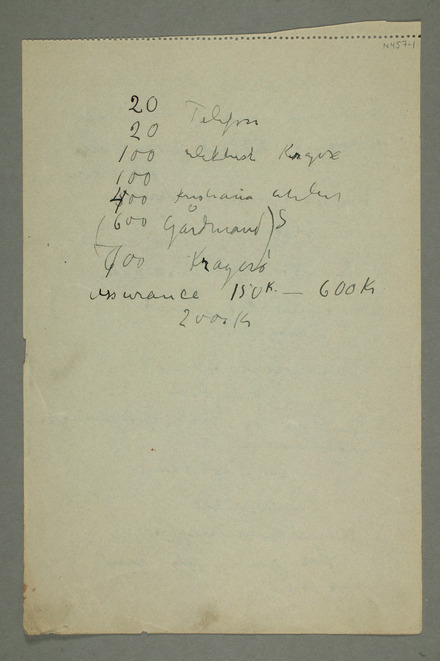 N457-1
20
Telefon
20
100 elektrisk Kragerø
100
400 kristiania
(600 Gårdmand)
700 Kragerø
assurance 150 K. — 600 K
2000 K